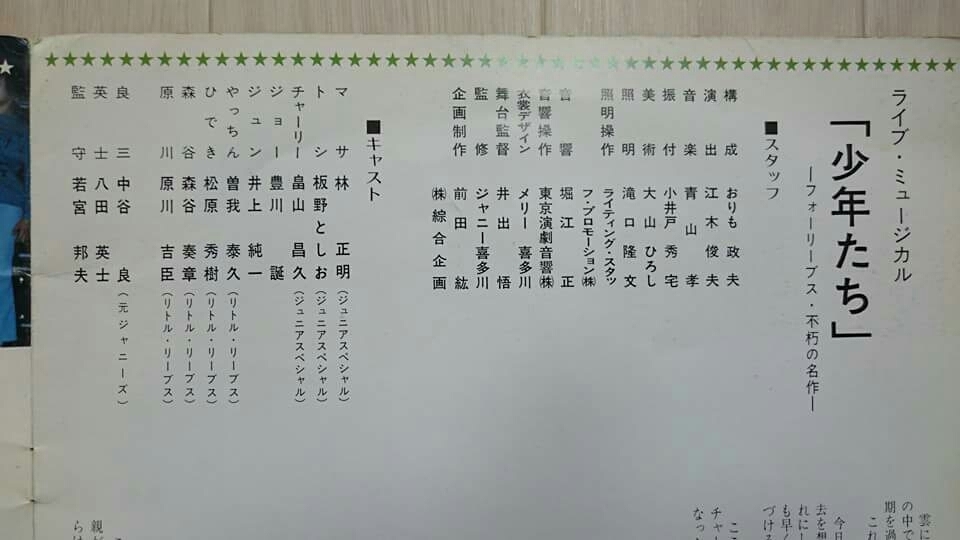 ライブ・ミュージカル
「少年たち」
―フォーリーブス・不朽の名作―
■スタッフ
構成 おりも政夫
演出 江木俊夫
音楽 青山孝
振付 小井戸秀宅
美術 大山ひろし
照明 滝口隆文
照明操作 ライティング・スタッフ・プロモーション㈱
音響 堀江正
音響操作 東京演劇音響㈱
衣裳デザイン メリー喜多川
舞台監督 井出悟
監修 ジャニー喜多川
企画制作 前田紘
㈱綜合企画
■キャスト
マサ 林正明(ジュニアスペシャル)
トシ 板野としお(ジュニアスペシャル)
チャーリー 畠山昌久(ジュニアスペシャル)
ジョー 豊川誕
ジュン 井上純一
やっちん 曽我泰久(リトル・リーブス)
ひでき 松原秀樹(リトル・リーブス)
森谷 森谷奏章(リトル・リーブス)
原川 原川吉臣(リトル・リーブス)
良三 中谷良(元ジャニーズ)
英士 八田英士
監守 若宮邦夫
雲に
の中で
期を過
これ
今日
去を想
れにし
も早く
づける
ここ
チャー
なった
親ど
らは